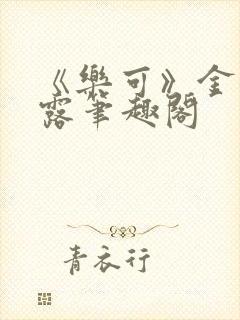 《樂可》金
露筆趣閣
青衣行